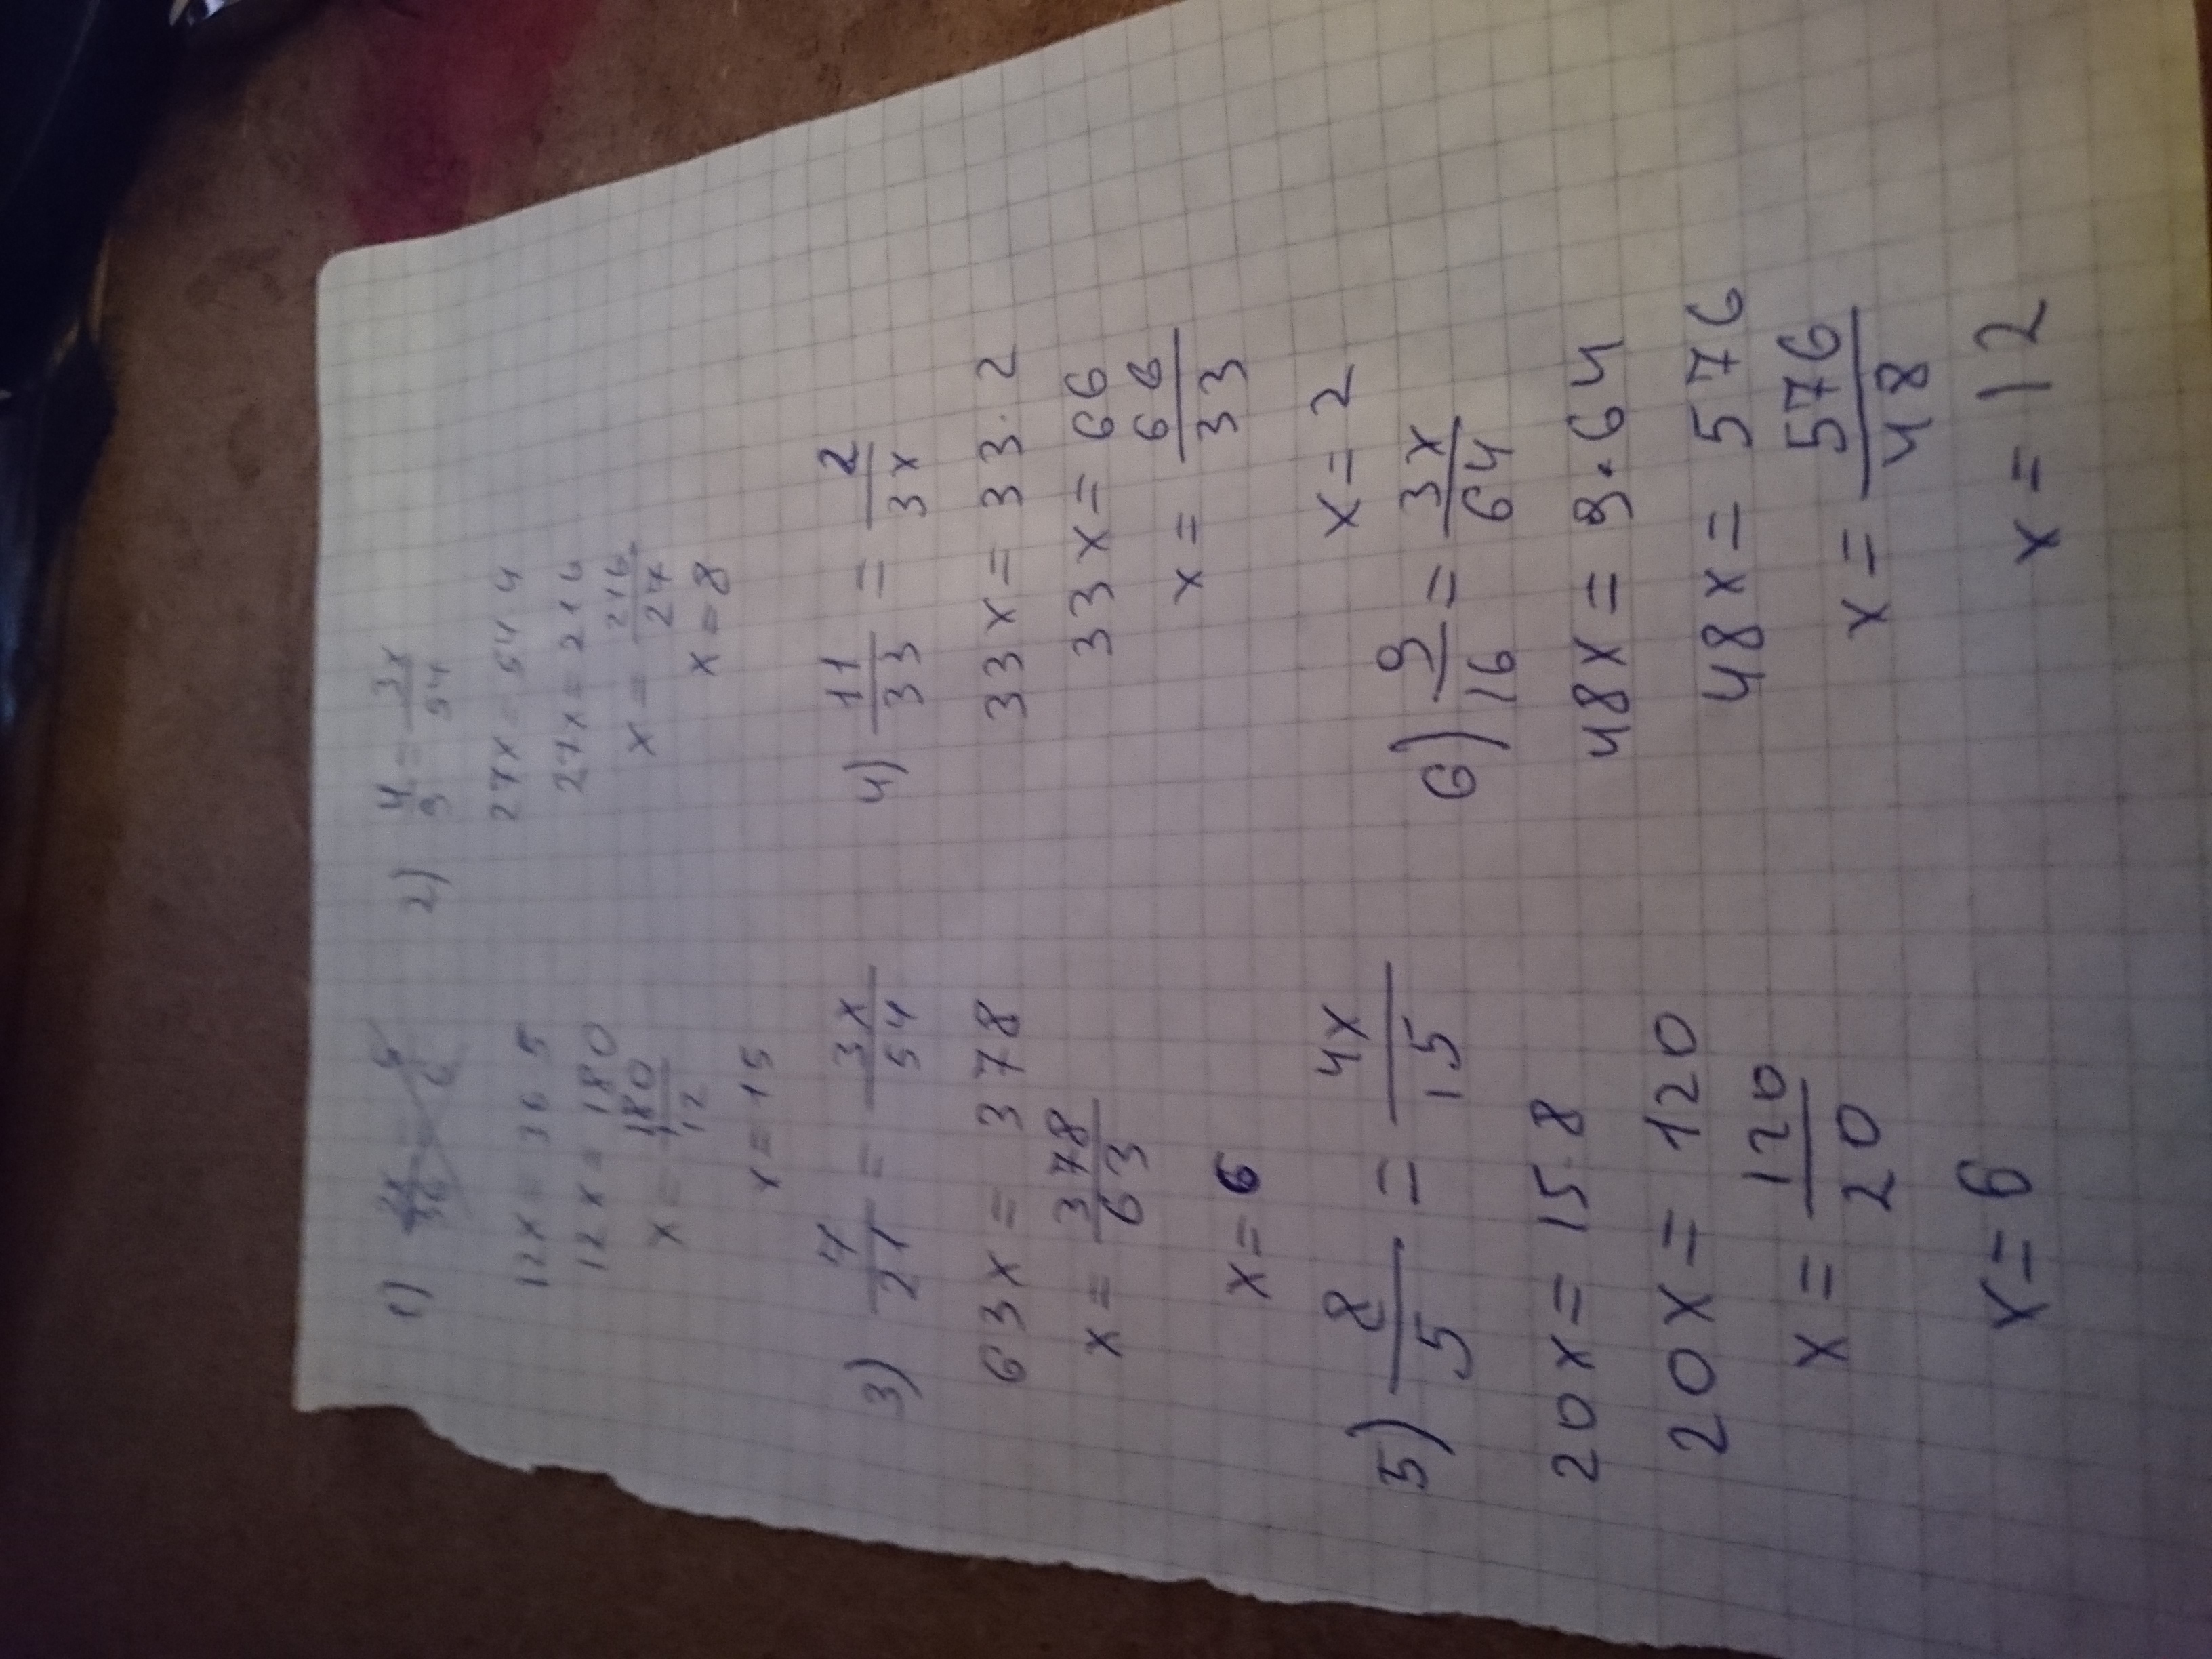 1) 2x/36 = 5/6
12x = 36 5
12x = 180
x = 180/12
x = 15
2) 4/9 = 3x/54
27x = 54 4
27x = 216
x = 216/27
x = 8
3) 7/21 = 3x/54
63x = 378
x = 378/63
x = 6
4) 11/33 = 2/3x
33x = 33·2
33x = 66
x = 66/33
x = 2
5) 8/5 = 4x/15
20x = 15·8
20x = 120
x = 120/20
x = 6
6) 9/16 = 3x/64
48x = 9·64
48x = 576
x = 576/48
x = 12